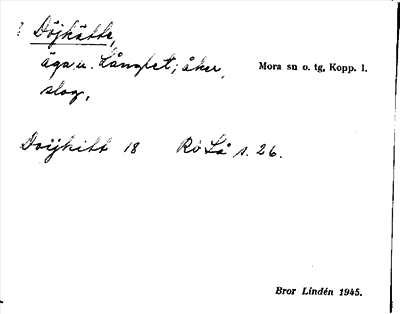 Döjkätte,
äga u. Långlet; åker, Mora sn o. tg, Kopp. l.
slog,
Doijkitt 18 Rö Lå s. 26.
Bror Lindén 1945.